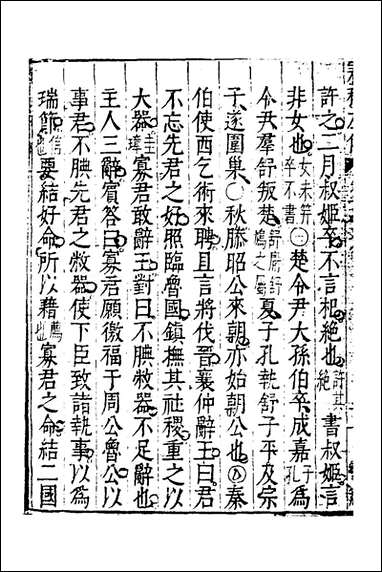 許之二月叔姬卒不言杞絶也許其絶書叔姬言
非女也女未笄卒不書㊂楚令尹大孫伯卒成嘉子孔爲
令尹羣舒叛楚舒庸舒鳩之屬夏子孔執舒子平及宗
子遂圍巢〇秋滕昭公來朝亦始朝公也秦
伯使西乞術來聘且言將伐晉襄仲辭玉曰君
不忘先君之好照臨魯國鎮撫其社稷重之以
大器圭璋寡君敢辭玉對曰不腆敝器不足辭也
主人三辭賓答曰寡君願徼福于周公魯公以
事君不腆先君之敝器使下臣致諸執事以爲
瑞節信也要結好命所以藉薦也寡君之命結二國